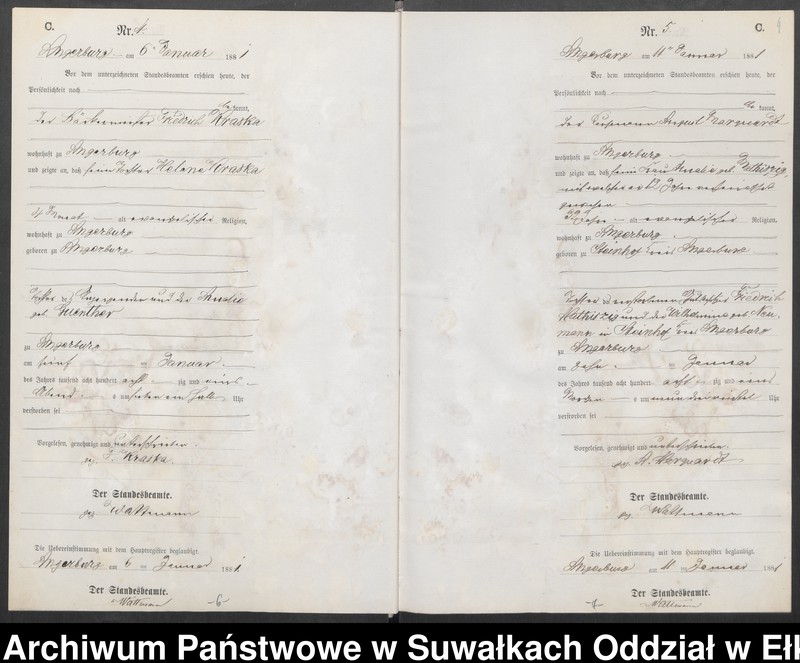 C.
Nr. 4.
Angerburg am 6 Januar 1881
Vor dem unterzeichneten Standesbeamten erschien heute, der
Persönlichkeit nach
kannt,
der Bäckermeister Friedrich Kraska
wohnhaft zu Angerburg
und zeigte an, daß seine Tochter Helene Kraska
alt evangelischer Religion,
wohnhaft zu Angerburg
geboren zu Angerburg
Tochter des und der Amalie
geb. Guenther
zu Angerburg
am fünf ten Januar
des Jahres tausend acht hundert acht zig und eins
Abend um halb Uhr
verstorben sei
Vorgelesen, genehmigt und unterschrieben
gez. F. Kraska.
Der Standesbeamte.
gez. Wattmann
Die Uebereinstimmung mit dem Hauptregister beglaubigt.
Angerburg am 6 ten Januar 1881
Der Standesbeamte.
Wattmann
-6-
Nr. 5.
C.
Angerburg am 11 Januar 1881
Vor dem unterzeichneten Standesbeamten erschien heute, der
Persönlichkeit nach
kannt,
der August Marquardt
wohnhaft zu Angerburg
und zeigte an, daß seine Frau Amalie geb. Mathiszig,
mit welcher er 12 Jahre
gewesen
alt evangelischer Religion,
wohnhaft zu Angerburg
geboren zu Steinhof Kreis Angerburg
Tochter des verstorbenen Friedrich
Mathiszig und der Wilhelmine geb. Neu-
mann in Steinhof Kreis Angerburg
zu Angerburg
am zehn ten Januar
des Jahres tausend acht hundert acht zig und eins
um neun ein viertel Uhr
verstorben sei
Vorgelesen, genehmigt und unterschrieben
gez. A. Marquardt
Der Standesbeamte.
gez. Wattmann
Die Uebereinstimmung mit dem Hauptregister beglaubigt.
Angerburg am 11 ten Januar 1881
Der Standesbeamte.
Wattmann
Archiwum Państwowe w Suwałkach Oddział w Ełk